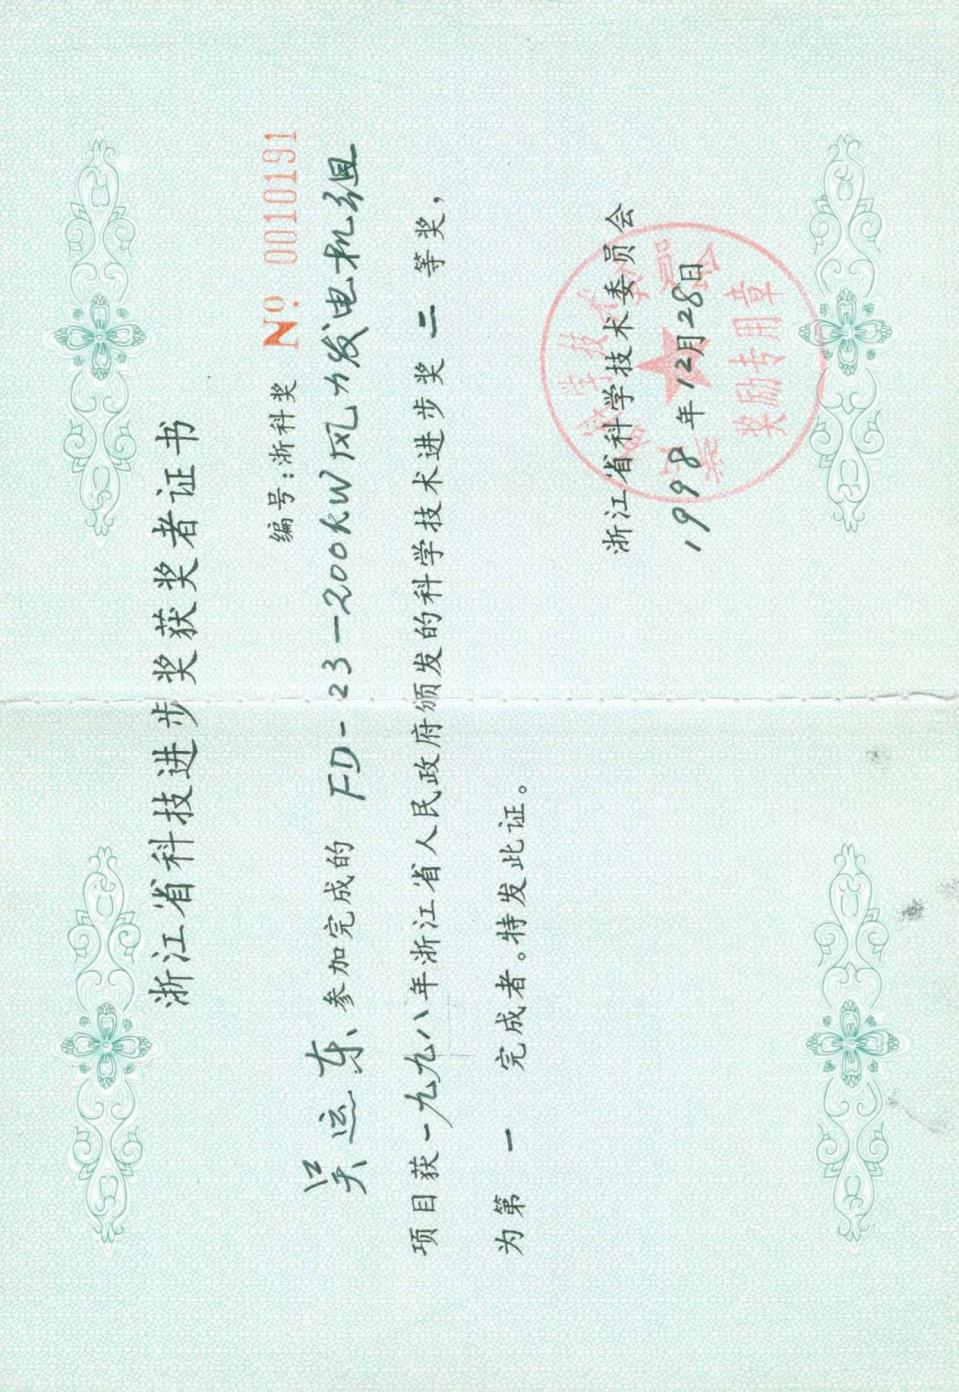 浙江省科技进步奖获奖者证书
编号:浙科奖 Nº 0010191
吴运东参加完成的 FD-23-200KW风力发电机组
项目获一九九八年浙江省人民政府颁发的科学技术进步奖 二 等奖,
为第 一 完成者。特发此证。
浙江省科学技术委员会
1998年12月28日
奖励专用章